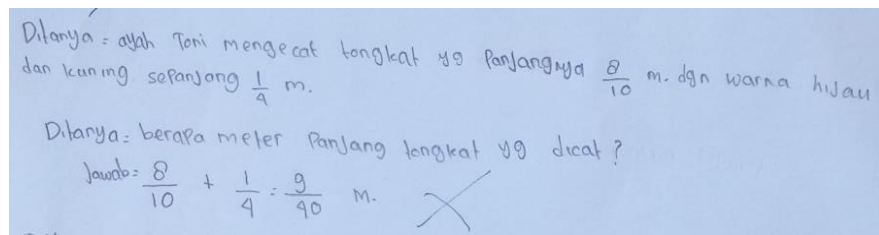 Ditanya = ayah Toni mengecat tongkat yg Panjangnya 8/10 m. dgn warna hijau
dan kuning sepanjang 1/4 m.
Ditanya = berapa meter Panjang tongkat yg dicat?
Jawab = 8/10 + 1/4 = 9/40 m.